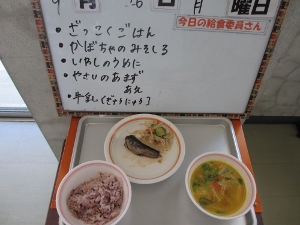 9月26日 月曜日
今日の給食委員さん
・ざっこくごはん
・かぼちゃのみそしる
・いわしのうめに
・やさいのあまず
あえ
・牛乳[ぎゅうにゅう]